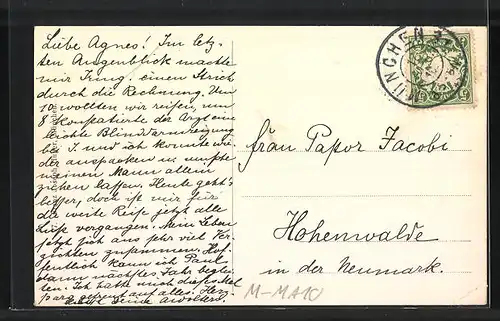 Liebe Agnes! Im letz-
ten Augenblick machte
mir Irmg. einen Strich
durch die Rechnung. Um
10 wollten wir reisen, um
8 konstatierte der Arzt eine
leichte Blinddarmreizung
bei I. und ich konnte wie-
der auspacken u. mußte
meinen Mann allein
ziehen lassen. Heute geht's
besser, doch ist mir für
die weite Reise jetzt alle
Lust vergangen. Mein Leben
setzt sich aus sehr viel Ver-
zichten zusammen. Hof-
fentlich kann ich Paul
dann nächstes Jahr beglei-
ten. Ich hatte mich dieses Mal
ganz gefreut auf alles. Herz-
MÜNCHEN
Frau Pastor Jacobi
Hohenwalde
in der Neumark.
M-MA10